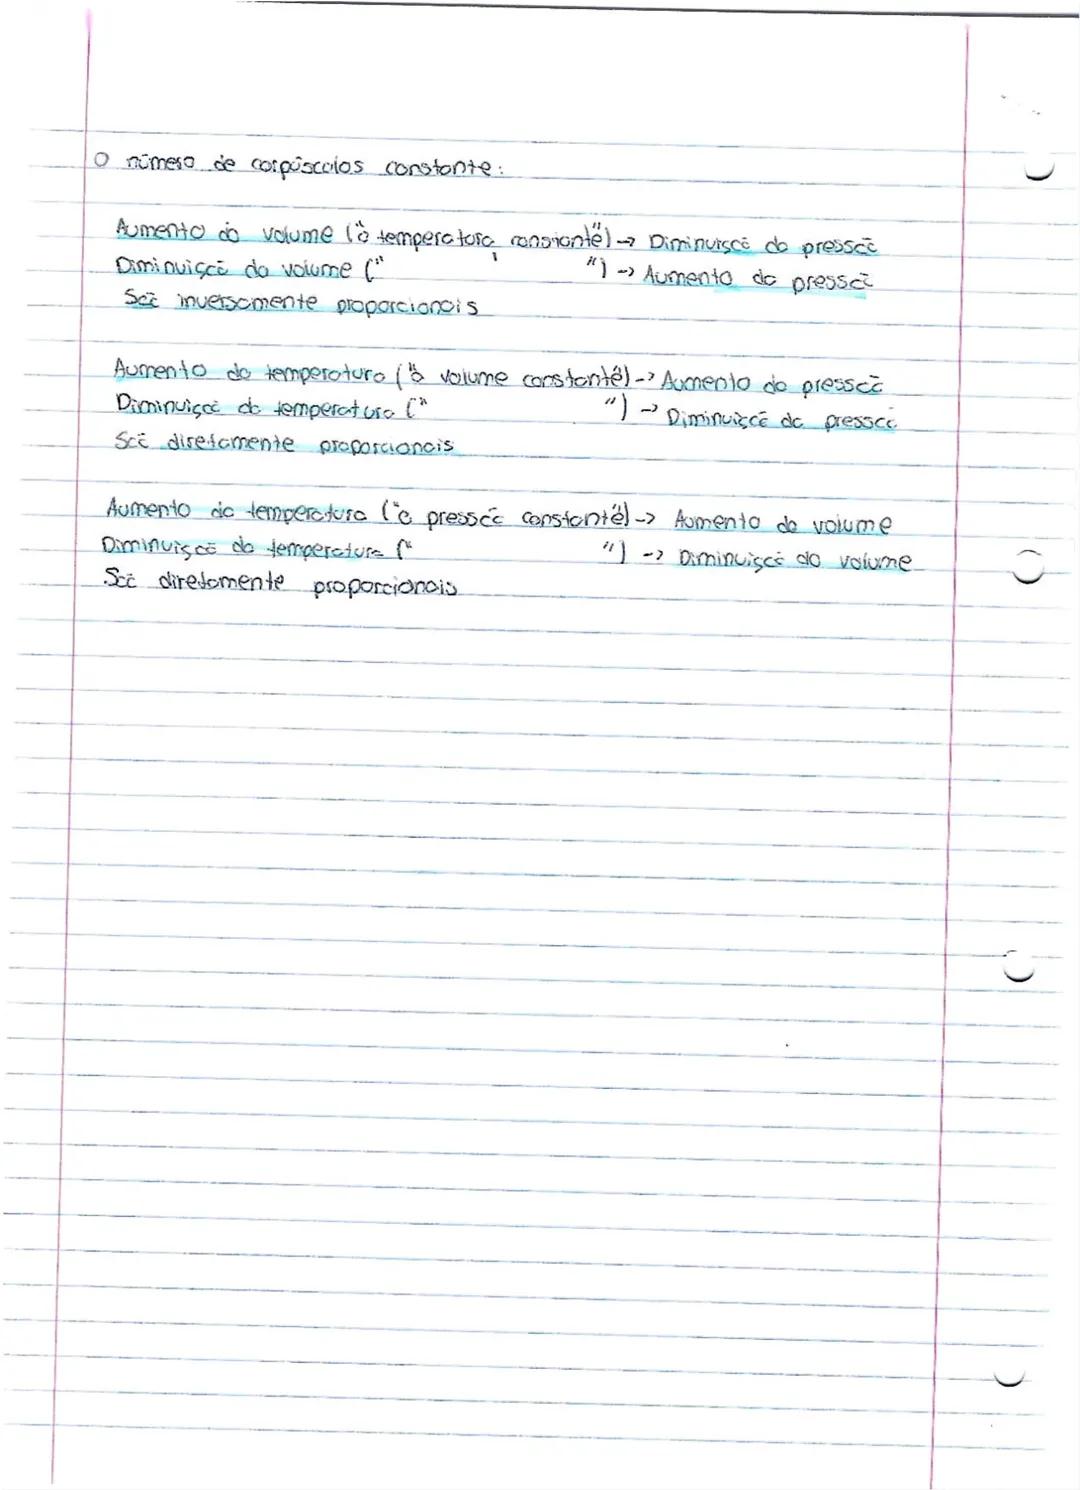 O número de corpúsculos constante:
Aumento do volume ("à temperatura constante") -> Diminuição da pressão
Diminuição do volume (" ") -> Aumento da pressão
São inversamente proporcionais
Aumento da temperatura ("a volume constante") -> Aumento da pressão
Diminuição da temperatura (" ") -> Diminuição da pressão
São diretamente proporcionais
Aumento da temperatura ("a pressão constante") -> Aumento do volume
Diminuição da temperatura (" ") -> Diminuição do volume
São diretamente proporcionais